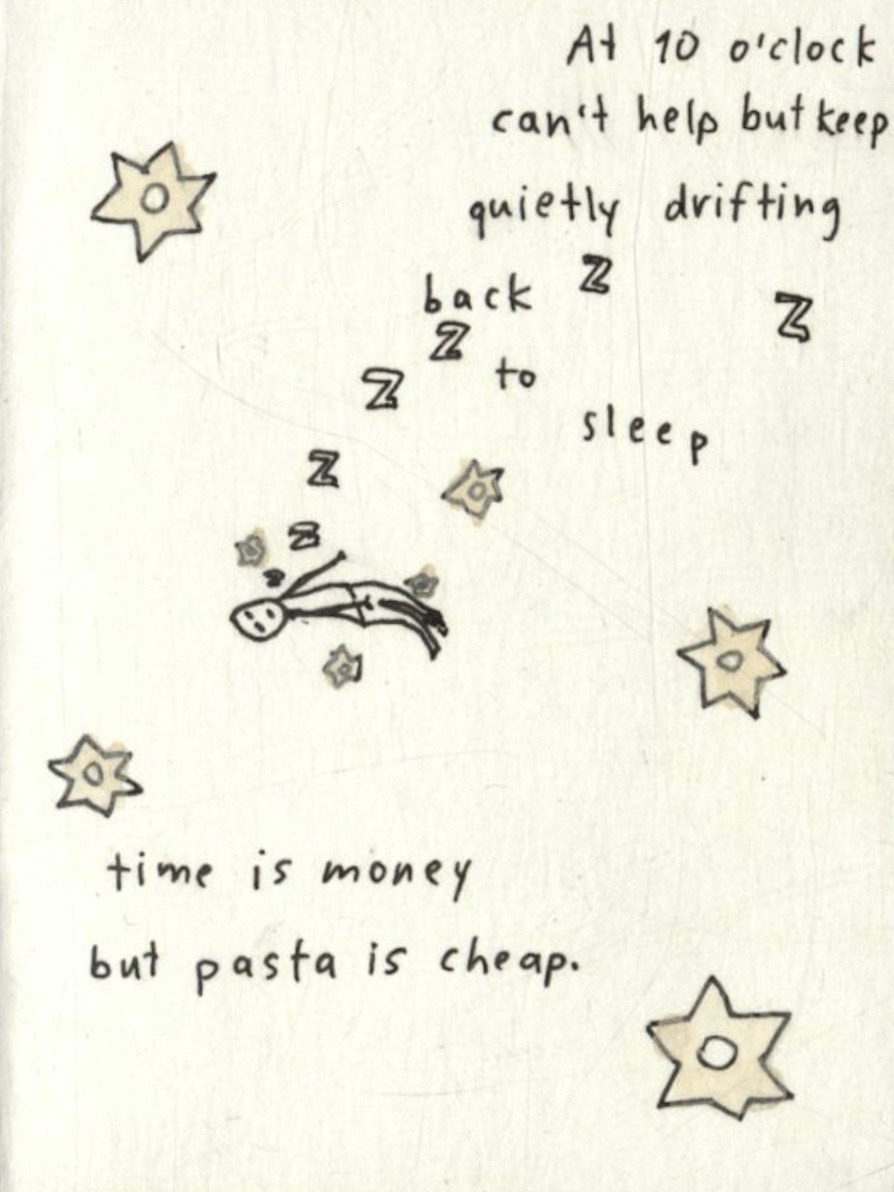 At 10 o'clock
can't help but keep
quietly drifting
back
to
sleep
z
z
z
z
z
z
z
time is money
but pasta is cheap.